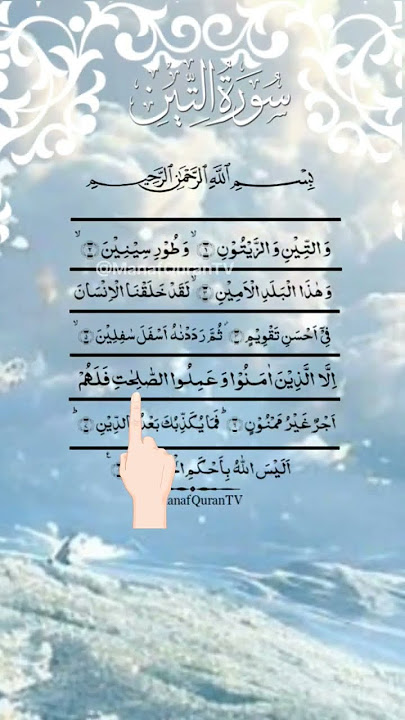 سُورَةُ التِّينِ
بِسْمِ اللّٰهِ الرَّحْمٰنِ الرَّحِيمِ
وَالتِّيْنِ وَالزَّيْتُوْنِ ۙ﴿۱﴾ وَطُوْرِ سِيْنِيْنَ ۙ﴿۲﴾
@ManafQuranTV
وَهٰذَا الْبَلَدِ الْاَمِيْنِ ۙ﴿۳﴾ لَقَدْ خَلَقْنَا الْاِنْسَانَ
فِيْۤ اَحْسَنِ تَقْوِيْمٍ ۫﴿۴﴾ ثُمَّ رَدَدْنٰهُ اَسْفَلَ سٰفِلِيْنَ ۙ﴿۵﴾
اِلَّا الَّذِيْنَ اٰمَنُوْا وَ عَمِلُوا الصّٰلِحٰتِ فَلَهُمْ
اَجْرٌ غَيْرُ مَمْنُوْنٍ ؕ﴿۶﴾ فَمَا يُكَذِّبُكَ بَعْدُ بِالدِّيْنِ ؕ﴿۷﴾
اَلَيْسَ اللّٰهُ بِاَحْكَمِ
ManafQuranTV